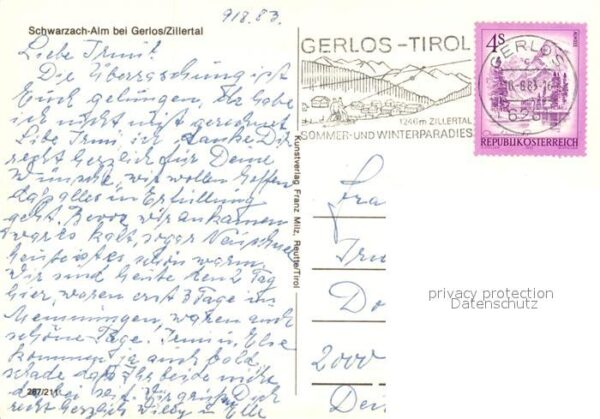 9/8.83.
Schwarzach-Alm bei Gerlos/Zillertal
Liebe Irmi!
Die Überraschung ist
Euch gelungen, da habe
ich nicht mit gerechnet
Liebe Irmi ich danke Dir
recht herzlich für Deine
Wünsche, wir wollen hoffen
daß alles in Erfüllung
geht. Bevor wir ankamen
war es kalt, sogar Neuschnee
heute ist es schön warm
Wir sind heute den 2 Tag
hier, waren erst 3 Tage in
Memmingen, waren auch
schöne Tage. Irmi u. Else
kommen ja auch bald,
schade daß Ihr beide nicht
dabei seit. Wir grüßen Dich
recht herzlich Willy u. Elle
267/211
Kunstverlag Franz Milz, Reutte/Tirol
GERLOS-TIROL
1246m ZILLERTAL
SOMMER-UND WINTERPARADIES
GERLOS
6281
4S
REPUBLIK ÖSTERREICH
Fra
Do
2000
privacy protection
Datenschutz